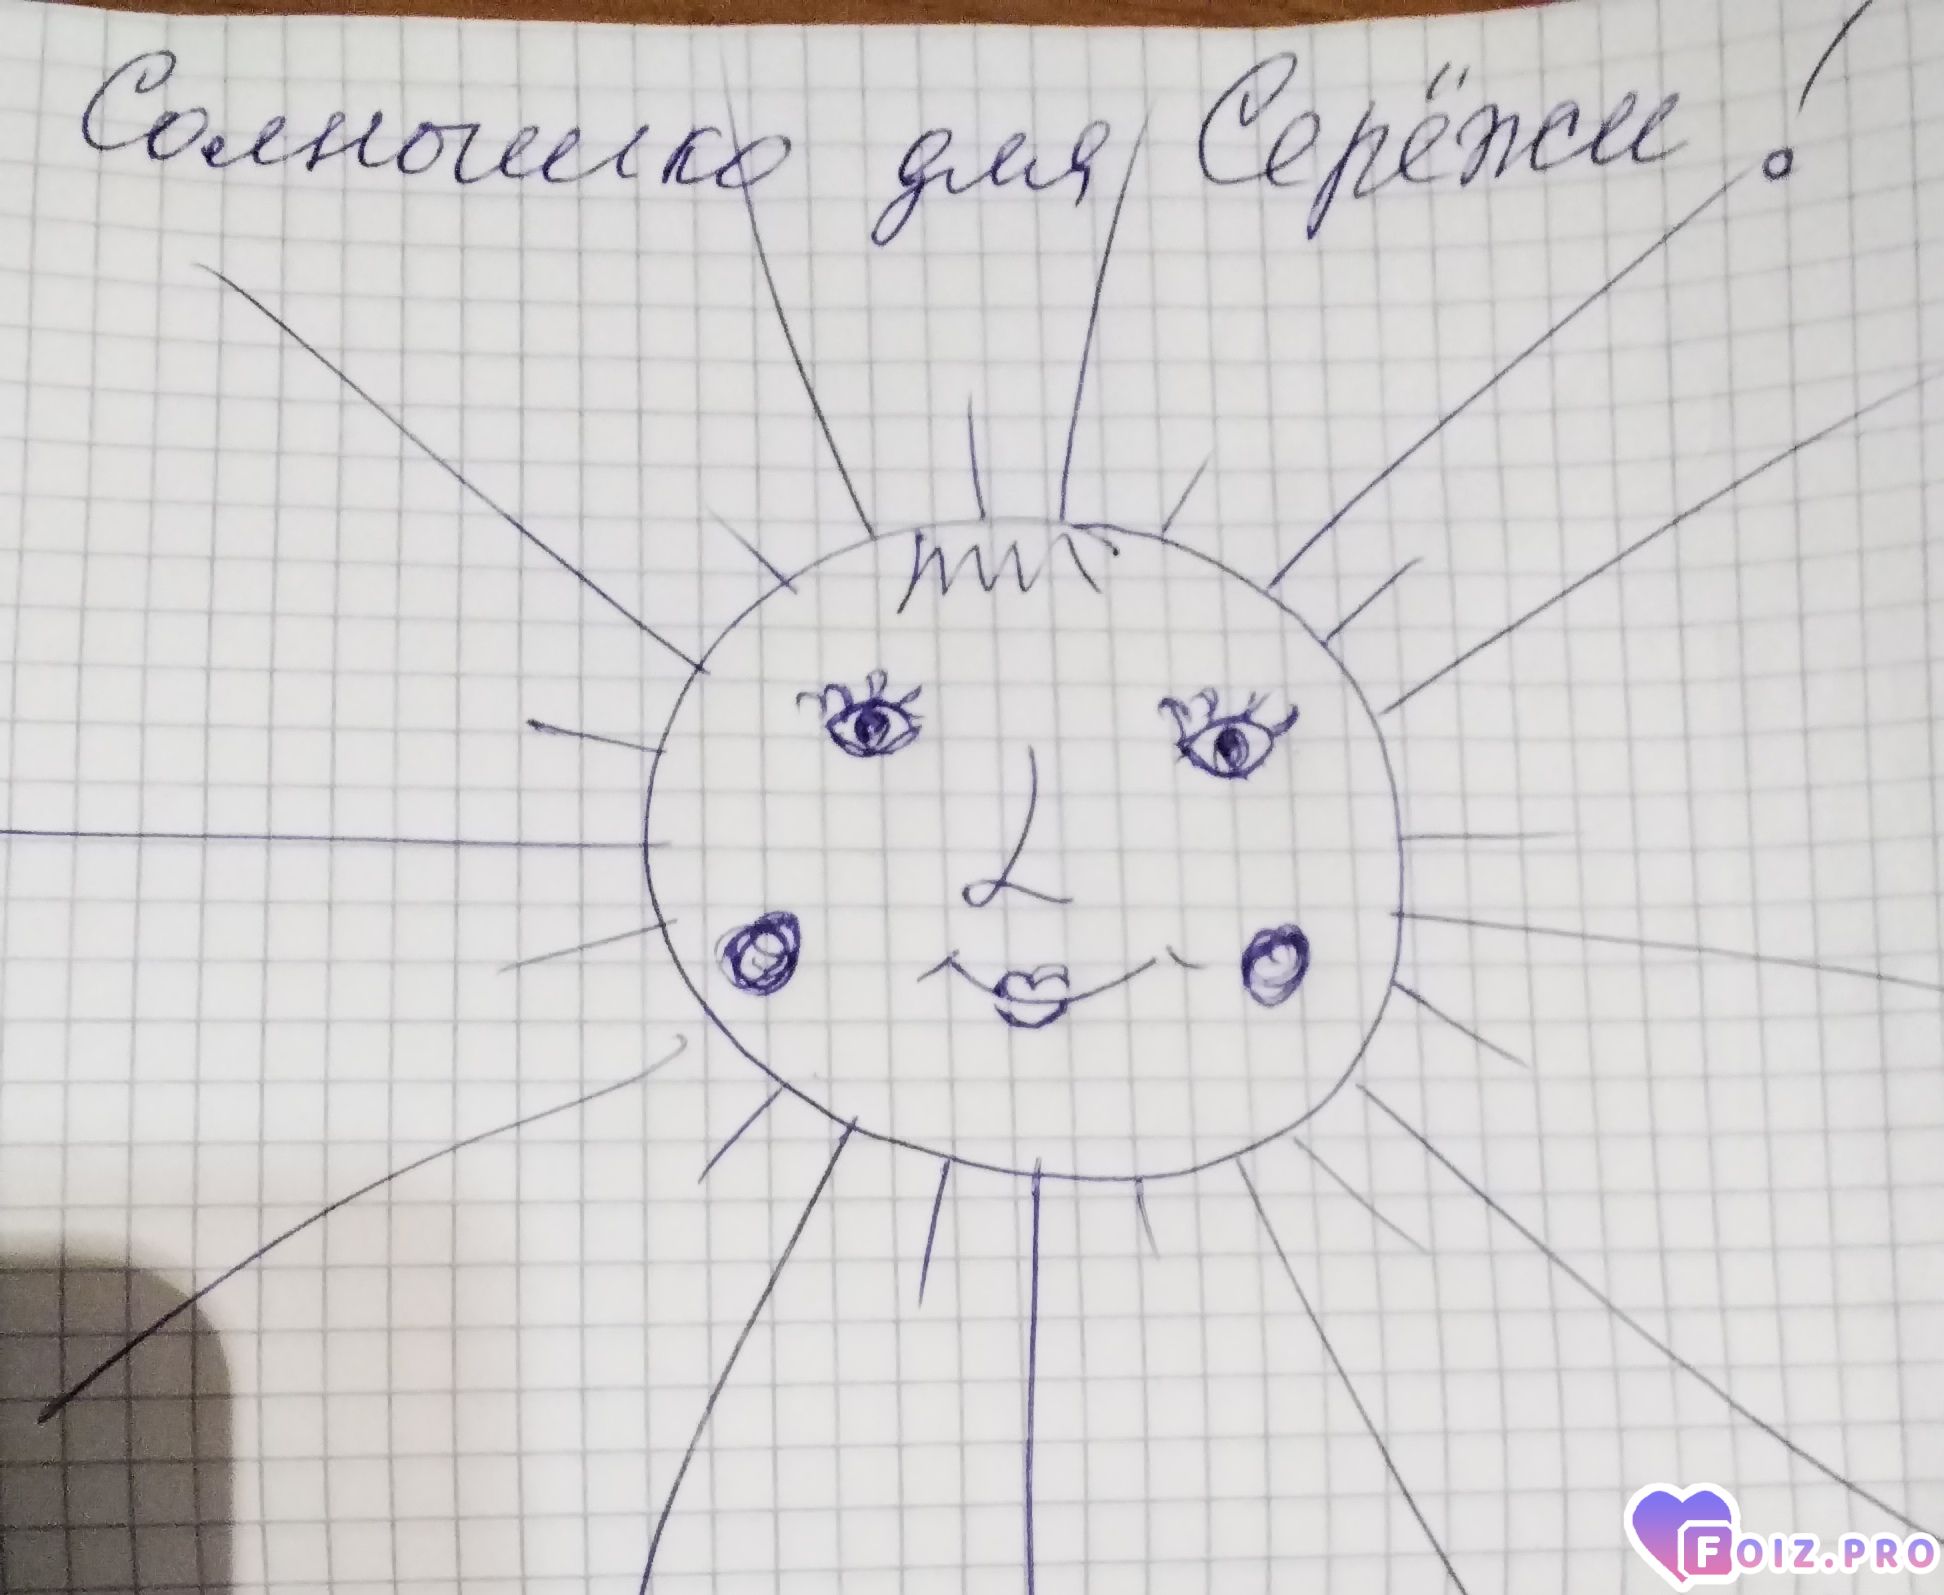 Солнышко для Серёжи!
FOIZ.PRO